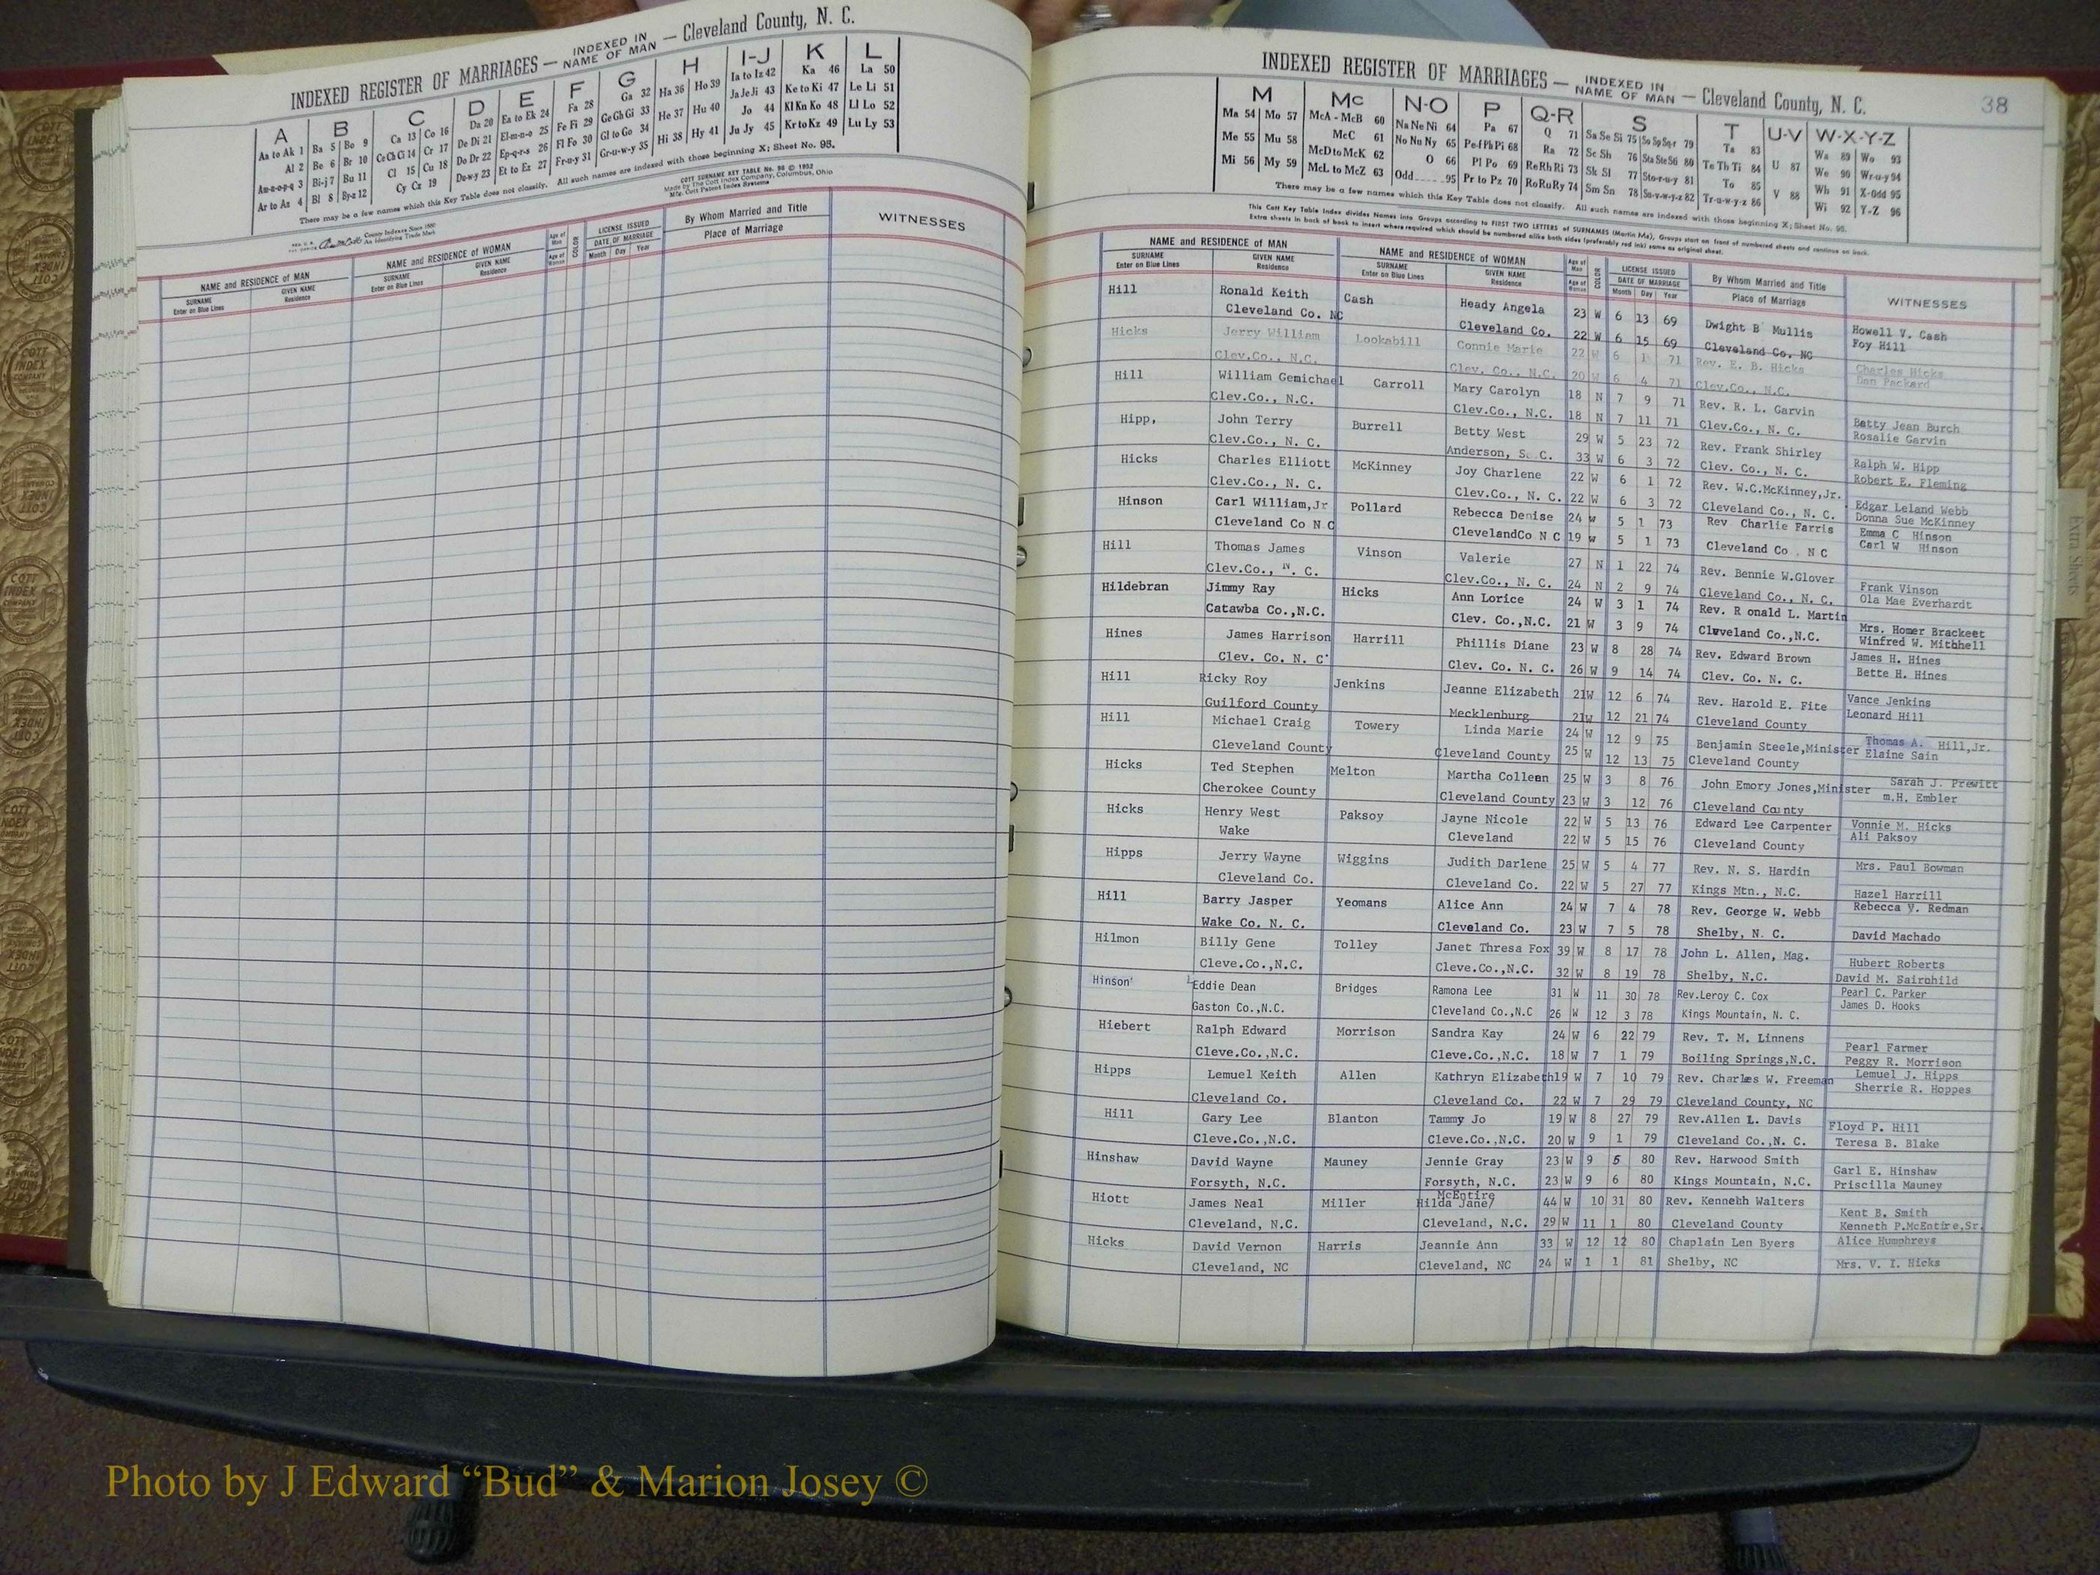 INDEXED REGISTER OF MARRIAGES — INDEXED IN NAME OF MAN — Cleveland County, N. C.
A B C D E F G H I-J K L
Aa to Ak 1 Ba 5 Bo 9 Ca 13 Co 16 Da 20 Ea to Ek 24 Fa 28 Ga 32 Ha 36 Ho 39 Ia to Iz 42 Ka 46 La 50
Al 2 Be 6 Br 10 Ce Ch Ci 14 Cr 17 De Di 21 El-m-n-o 25 Fe Fi 29 Ge Gh Gi 33 He 37 Hu 40 Ja Je Ji 43 Ke to Ki 47 Le Li 51
Am-n-o-p-q 3 Bi-j 7 Bu 11 Cl 15 Cu 18 Do Dr 22 Ep-q-r-s 26 Fl Fo 30 Gl to Go 34 Hi 38 Hy 41 Jo 44 Kl Kn Ko 48 Ll Lo 52
Ar to Az 4 Bl 8 By-z 12 Cy Cz 19 Du-w-y 23 Et to Ez 27 Fr-u-y 31 Gr-u-w-y 35 Ju Jy 45 Kr to Kz 49 Lu Ly 53
There may be a few names which this Key Table does not classify. All such names are indexed with those beginning X; Sheet No. 95.
COTT SURNAME KEY TABLE No. 98 © 1952
Made by The Cott Index Company, Columbus, Ohio
Mfg. Cott Patent Index Systems
County Indexes Since 1880
An Identifying Trade Mark
NAME and RESIDENCE of MAN NAME and RESIDENCE of WOMAN Age of Man COLOR LICENSE ISSUED By Whom Married and Title WITNESSES
SURNAME GIVEN NAME SURNAME GIVEN NAME Age of Woman DATE OF MARRIAGE Place of Marriage
Enter on Blue Lines Residence Enter on Blue Lines Residence Month Day Year
INDEXED REGISTER OF MARRIAGES — INDEXED IN NAME OF MAN — Cleveland County, N. C. 38
M Mc N-O P Q-R S T U-V W-X-Y-Z
Ma 54 Mo 57 McA - McB 60 Na Ne Ni 64 Pa 67 Q 71 Sa Se Si 75 So Sp Sq-r 79 Ta 83 Wa 89 Wo 93
Me 55 Mu 58 McC 61 No Nu Ny 65 Pe-f Ph Pi 68 Ra 72 Sc Sh 76 Sta Ste Sti 80 Te Th Ti 84 U 87 We 90 Wr-u-y 94
Mi 56 My 59 McD to McK 62 O 66 Pl Po 69 Re Rh Ri 73 Sk Sl 77 Sto-r-u-y 81 To 85 Wh 91 X-Odd 95
McL to McZ 63 Odd 95 Pr to Pz 70 Ro Ru Ry 74 Sm Sn 78 Su-v-w-y-z 82 Tr-u-w-y-z 86 V 88 Wi 92 Y-Z 96
There may be a few names which this Key Table does not classify. All such names are indexed with those beginning X; Sheet No. 95.
This Cott Key Table Index divides Names into Groups according to FIRST TWO LETTERS of SURNAMES (Martin Ma), Groups start on front of numbered sheets and continue on back.
Extra sheets in back of book to insert where required which should be numbered alike both sides (preferably red ink) same as original sheet.
NAME and RESIDENCE of MAN NAME and RESIDENCE of WOMAN Age of Man COLOR LICENSE ISSUED By Whom Married and Title WITNESSES
SURNAME GIVEN NAME SURNAME GIVEN NAME Age of Woman DATE OF MARRIAGE Place of Marriage
Enter on Blue Lines Residence Enter on Blue Lines Residence Month Day Year
Hill Ronald Keith Cash Heady Angela 23 W 6 13 69 Dwight B Mullis Howell V. Cash
Cleveland Co. NC Cleveland Co. 22 W 6 15 69 Cleveland Co. NC Foy Hill
Hicks Jerry William Lookabill Connie Marie 22 W 6 1 71 Rev. E. B. Hicks Charles Hicks
Clev.Co., N.C. Clev. Co., N.C. 20 W 6 4 71 Clev.Co., N.C. Dan Packard
Hill William Gemichael Carroll Mary Carolyn 18 N 7 9 71 Rev. R. L. Garvin Betty Jean Burch
Clev.Co., N.C. Clev.Co., N.C. 18 N 7 11 71 Clev.Co., N. C. Rosalie Garvin
Hipp, John Terry Burrell Betty West 29 W 5 23 72 Rev. Frank Shirley Ralph W. Hipp
Clev.Co., N. C. Anderson, S. C. 33 W 6 3 72 Clev. Co., N. C. Robert E. Fleming
Hicks Charles Elliott McKinney Joy Charlene 22 W 6 1 72 Rev. W.C.McKinney,Jr. Edgar Leland Webb
Clev.Co., N. C. Clev.Co., N. C. 22 W 6 3 72 Cleveland Co., N. C. Donna Sue McKinney
Hinson Carl William,Jr Pollard Rebecca Denise 24 w 5 1 73 Rev Charlie Farris Emma C Hinson
Cleveland Co N C ClevelandCo N C 19 w 5 1 73 Cleveland Co . N C Carl W Hinson
Hill Thomas James Vinson Valerie 27 N 1 22 74 Rev. Bennie W.Glover Frank Vinson
Clev.Co., N. C. Clev.Co., N. C. 24 N 2 9 74 Cleveland Co., N. C. Ola Mae Everhardt
Hildebran Jimmy Ray Hicks Ann Lorice 24 W 3 1 74 Rev. R onald L. Martin Mrs. Homer Brackeet
Catawba Co.,N.C. Clev. Co.,N.C. 21 W 3 9 74 Cleveland Co.,N.C. Winfred W. Mitchell
Hines James Harrison Harrill Phillis Diane 23 W 8 28 74 Rev. Edward Brown James H. Hines
Clev. Co. N. C. Clev. Co. N. C. 26 W 9 14 74 Clev. Co. N. C. Bette H. Hines
Hill Ricky Roy Jenkins Jeanne Elizabeth 21W 12 6 74 Rev. Harold E. Fite Vance Jenkins
Guilford County Mecklenburg 21W 12 21 74 Cleveland County Leonard Hill
Hill Michael Craig Towery Linda Marie 24 W 12 9 75 Benjamin Steele,Minister Thomas A. Hill,Jr.
Cleveland County Cleveland County 25 W 12 13 75 Cleveland County Elaine Sain
Hicks Ted Stephen Melton Martha Colleen 25 W 3 8 76 John Emory Jones,Minister Sarah J. Prewitt
Cherokee County Cleveland County 23 W 3 12 76 Cleveland County m.H. Embler
Hicks Henry West Paksoy Jayne Nicole 22 W 5 13 76 Edward Lee Carpenter Vonnie M. Hicks
Wake Cleveland 22 W 5 15 76 Cleveland County Ali Paksoy
Hipps Jerry Wayne Wiggins Judith Darlene 25 W 5 4 77 Rev. N. S. Hardin Mrs. Paul Bowman
Cleveland Co. Cleveland Co. 22 W 5 27 77 Kings Mtn., N.C. Hazel Harrill
Hill Barry Jasper Yeomans Alice Ann 24 W 7 4 78 Rev. George W. Webb Rebecca Y. Redman
Wake Co. N. C. Cleveland Co. 23 W 7 5 78 Shelby, N. C. David Machado
Hilmon Billy Gene Tolley Janet Thresa Fox 39 W 8 17 78 John L. Allen, Mag. Hubert Roberts
Cleve.Co.,N.C. Cleve.Co.,N.C. 32 W 8 19 78 Shelby, N.C. David M. Bairnhild
Hinson Eddie Dean Bridges Ramona Lee 31 W 11 30 78 Rev.Leroy C. Cox Pearl C. Parker
Gaston Co.,N.C. Cleveland Co.,N.C 26 W 12 3 78 Kings Mountain, N. C. James D. Hooks
Hiebert Ralph Edward Morrison Sandra Kay 24 W 6 22 79 Rev. T. M. Linnens Pearl Farmer
Cleve.Co.,N.C. Cleve.Co.,N.C. 18 W 7 1 79 Boiling Springs,N.C. Peggy R. Morrison
Hipps Lemuel Keith Allen Kathryn Elizabeth 19 W 7 10 79 Rev. Charles W. Freeman Lemuel J. Hipps
Cleveland Co. Cleveland Co. 22 W 7 29 79 Cleveland County, NC Sherrie R. Hoppes
Hill Gary Lee Blanton Tammy Jo 19 W 8 27 79 Rev.Allen L. Davis Floyd P. Hill
Cleve.Co.,N.C. Cleve.Co.,N.C. 20 W 9 1 79 Cleveland Co.,N. C. Teresa B. Blake
Hinshaw David Wayne Mauney Jennie Gray 23 W 9 5 80 Rev. Harwood Smith Garl E. Hinshaw
Forsyth, N.C. Forsyth, N.C. 23 W 9 6 80 Kings Mountain, N.C. Priscilla Mauney
McEntire
Hiott James Neal Miller Hilda Jane/ 44 W 10 31 80 Rev. Kenneth Walters Kent B. Smith
Cleveland, N.C. Cleveland, N.C. 29 W 11 1 80 Cleveland County Kenneth P.McEntire,Sr.
Hicks David Vernon Harris Jeannie Ann 33 W 12 12 80 Chaplain Len Byers Alice Humphreys
Cleveland, NC Cleveland, NC 24 W 1 1 81 Shelby, NC Mrs. V. I. Hicks
Extra Sheets
COTT INDEX COMPANY
Photo by J Edward “Bud” & Marion Josey ©